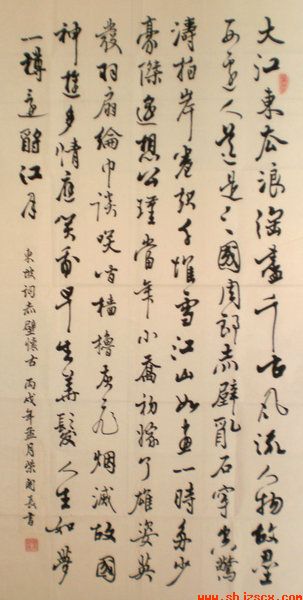 大江東去浪淘盡千古風流人物故壘
西邊人道是三國周郎赤壁亂石穿空驚
濤拍岸卷起千堆雪江山如畫一時多少
豪傑遙想公瑾當年小喬初嫁了雄姿英
發羽扇綸巾談笑間檣櫓灰飛烟滅故國
神遊多情應笑我早生華髮人生如夢
一樽還酹江月
東坡詞赤壁懷古 丙戌年孟月 書
www.shizscx.com